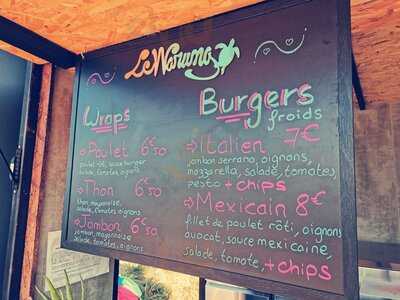 Le Warung
Wraps
⇒Poulet 6€50
poulet rôti, sauce burger
salade, tomates, oignons
⇒Thon 6€50
thon, mayonnaise,
salade, tomates, oignons
⇒Jambon 6€50
jambon, mayonnaise
salade, tomates, oignons
Burgers
froids
⇒Italien 7€
jambon serrano, oignons,
mozzarella, salade, tomates,
pesto + chips
⇒Mexicain 8€
fillet de poulet rôti, oignons
avocat, sauce mexicaine,
salade, tomate, + chips